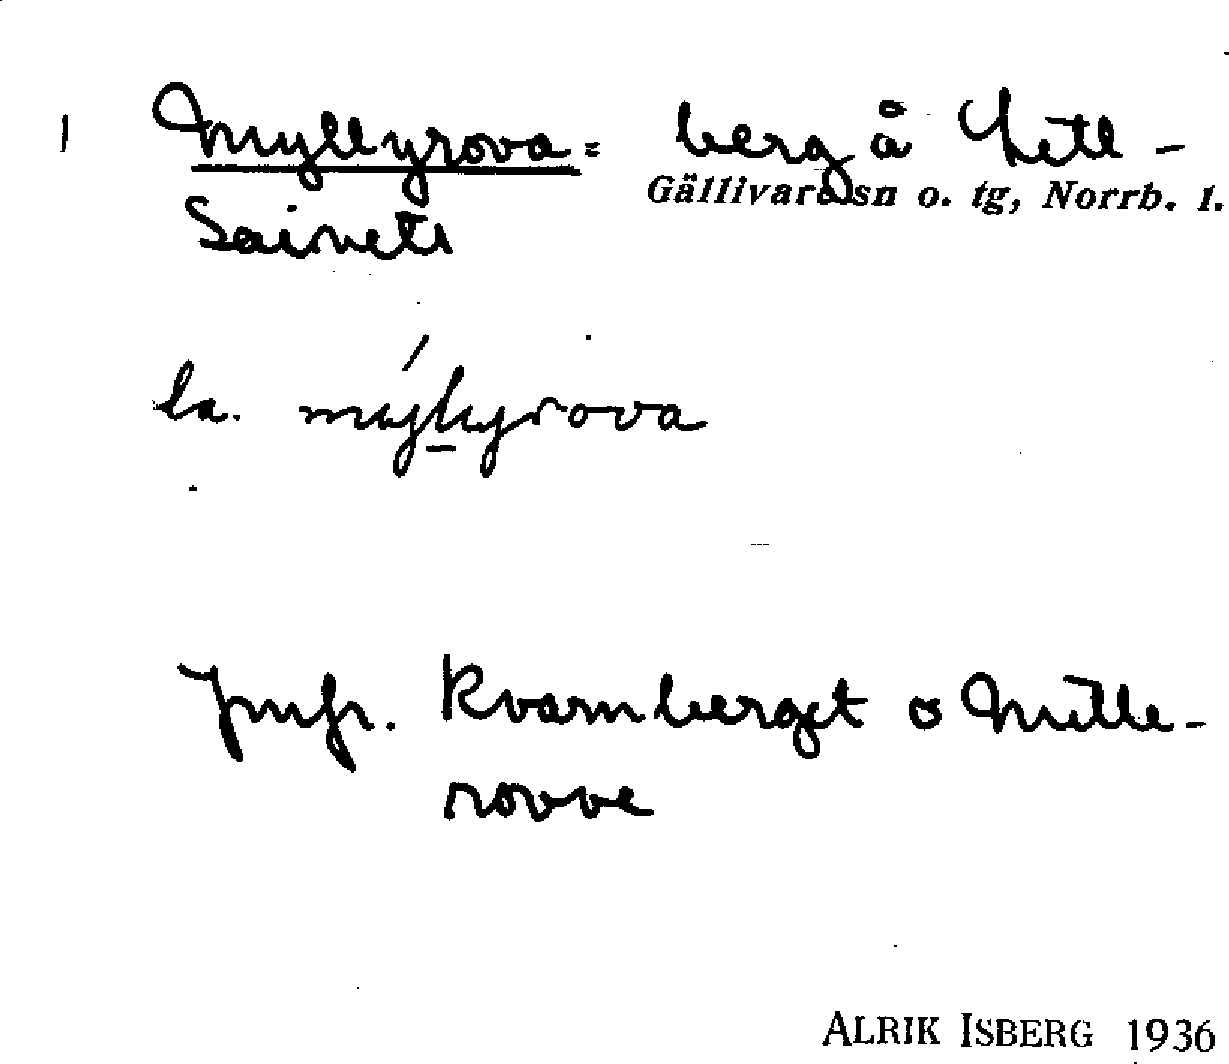 1 Myllyrova = berg å Lill-
Gällivare sn o. tg, Norrb. l.
Saivets
la. mýllyrova
Jmfr. Kvarnberget o Mille-
rovve
ALRIK ISBERG 1936